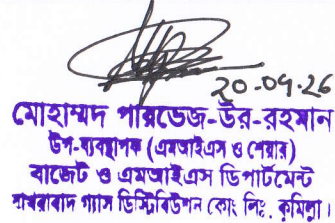 20-04-26
মোহাম্মদ পারভেজ-উর-রহমান
উপ-ব্যবস্থাপক (এমআইএস ও শেয়ার)
বাজেট ও এমআইএস ডিপার্টমেন্ট
বাখরাবাদ গ্যাস ডিস্ট্রিবিউশন কোং লিঃ, কুমিল্লা।